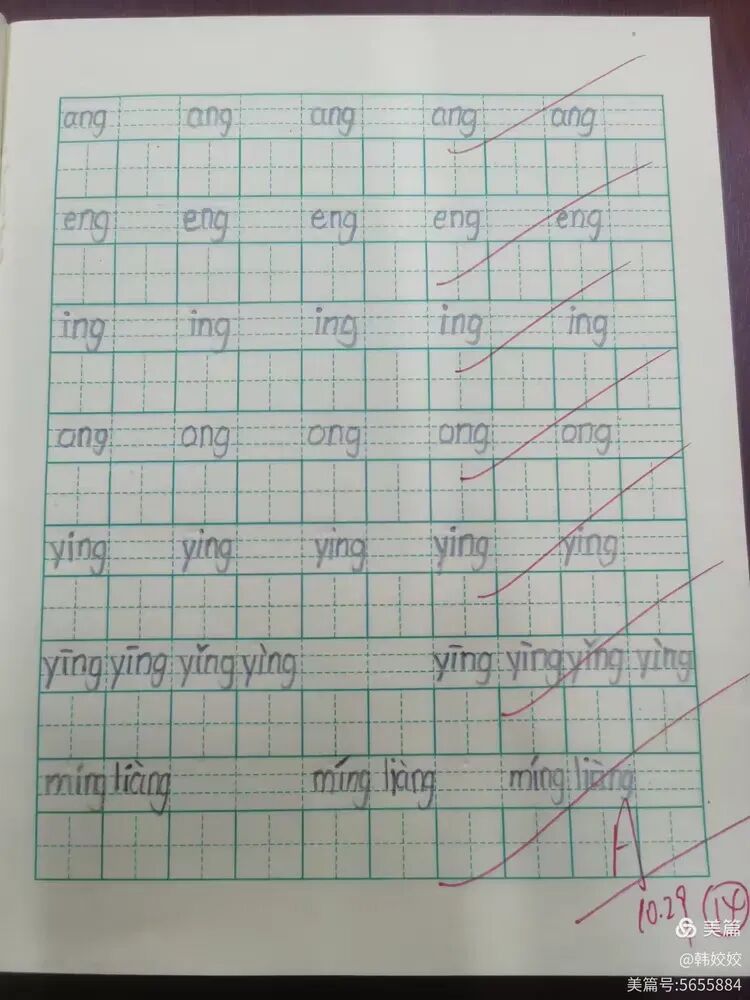 ang ang ang ang ang
eng eng eng eng eng
ing ing ing ing ing
ong ong ong ong ong
ying ying ying ying ying
yīng yīng yǐng yìng yīng yīng yǐng yìng
míng liàng míng liàng míng liàng
A
10.29 14
美篇
@韩姣姣
美篇号:5655884